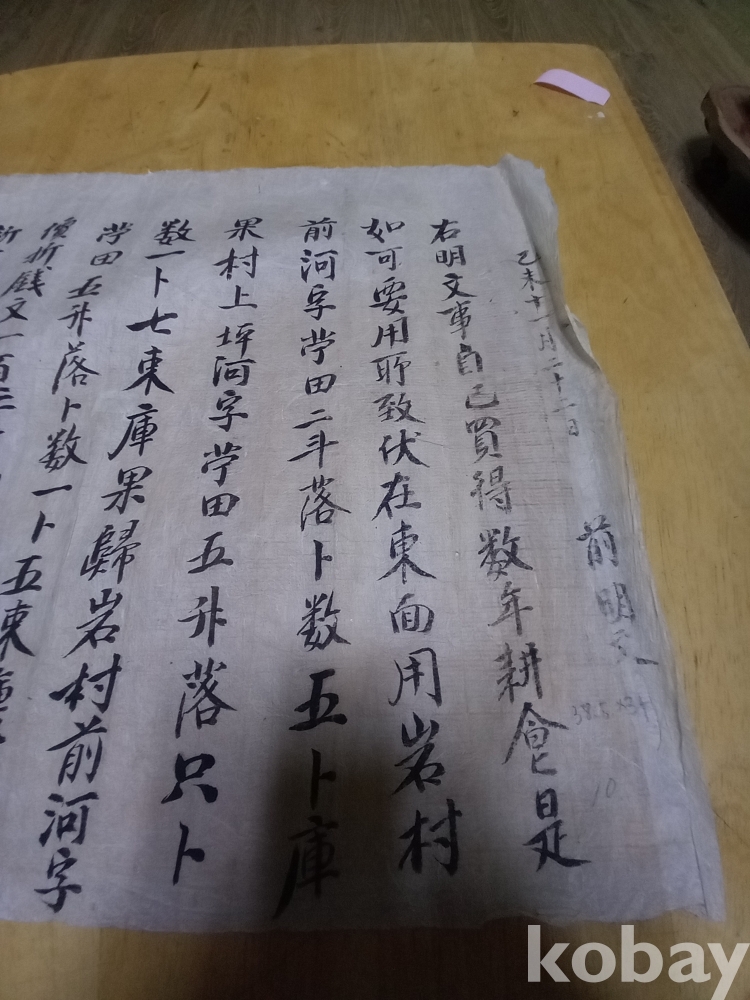 己未十一月二十一日 前明文
右明文事自己買得数年耕食是
如可要用所致伏在東面用岩村
前河字畓田二斗落卜数五卜庫
果村上坪河字畓田五升落只卜
数一卜七束庫果歸岩村前河字
畓田五升落卜数一卜五束庫
價折錢文一百
10
kobay